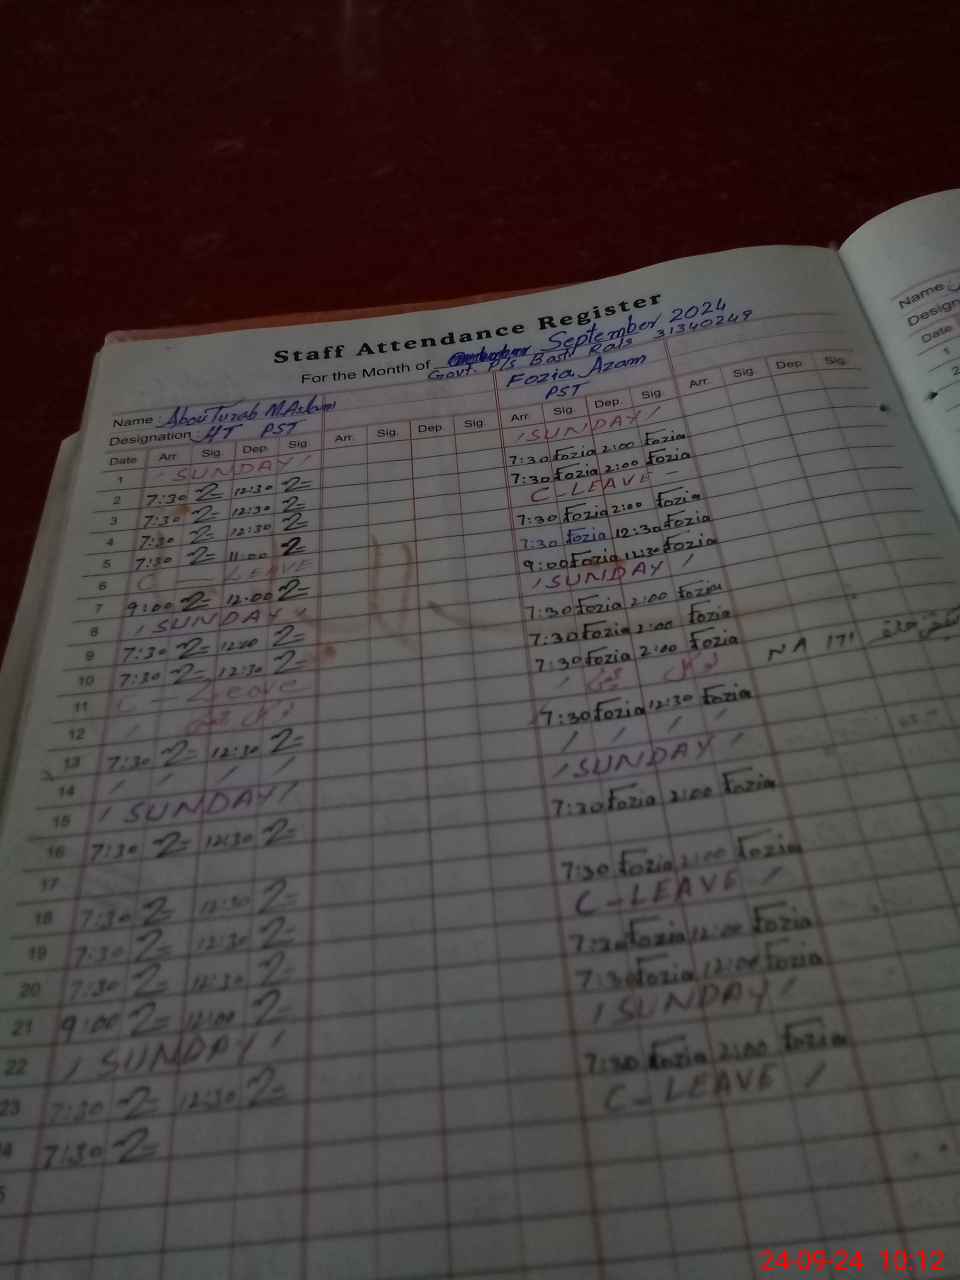 Staff Attendance Register
For the Month of September 2024
Govt. P/s Basti Rais 31340249
Name: Abou Turab M. Aslam Fozia Azam
Designation HT PST PST
Date Arr. Sig. Dep. Sig. Arr. Sig. Dep. Sig. Arr. Sig. Dep. Sig. Arr. Sig. Dep. Sig.
1 / SUNDAY / / SUNDAY /
2 7:30 12:30 7:30 Fozia 2:00 Fozia
3 7:30 12:30 7:30 Fozia 2:00 Fozia
4 7:30 12:30 C-LEAVE -
5 7:30 11:00 7:30 Fozia 2:00 Fozia
6 C - LEAVE 7:30 Fozia 12:30 Fozia
7 9:00 12:00 9:00 Fozia 11:30 Fozia
8 / SUNDAY / / SUNDAY /
9 7:30 12:00 7:30 Fozia 2:00 Fozia
10 7:30 12:30 7:30 Fozia 2:00 Fozia
11 C - Leave 7:30 Fozia 2:00 Fozia NA 171
12 / لوکل / لوکل
13 7:30 12:30 7:30 Fozia 12:30 Fozia
14 / / / / / / / /
15 / SUNDAY / / SUNDAY /
16 7:30 12:30 7:30 Fozia 2:00 Fozia
17
18 7:30 12:30 7:30 Fozia 2:00 Fozia
19 7:30 12:30 C-LEAVE /
20 7:30 12:30 7:30 Fozia 12:00 Fozia
21 9:00 12:00 7:30 Fozia 12:00 Fozia
22 / SUNDAY / / SUNDAY /
23 7:30 12:30 7:30 Fozia 2:00 Fozia
4 7:30 C-LEAVE /
5
Name
Design
Date
1
2
24-09-24 10:12